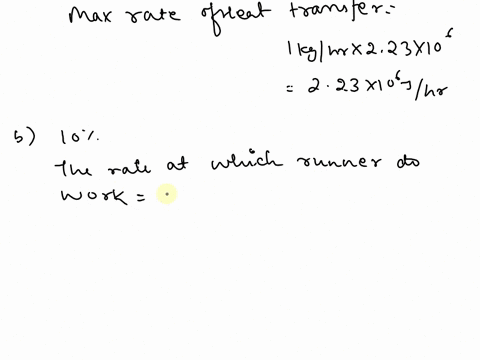 Max rate of Heat transfer:-
1 kg/hr × 2.23 × 10⁶
= 2.23 × 10⁶ J/hr
b) 10%
The rate at which runner do
Work =